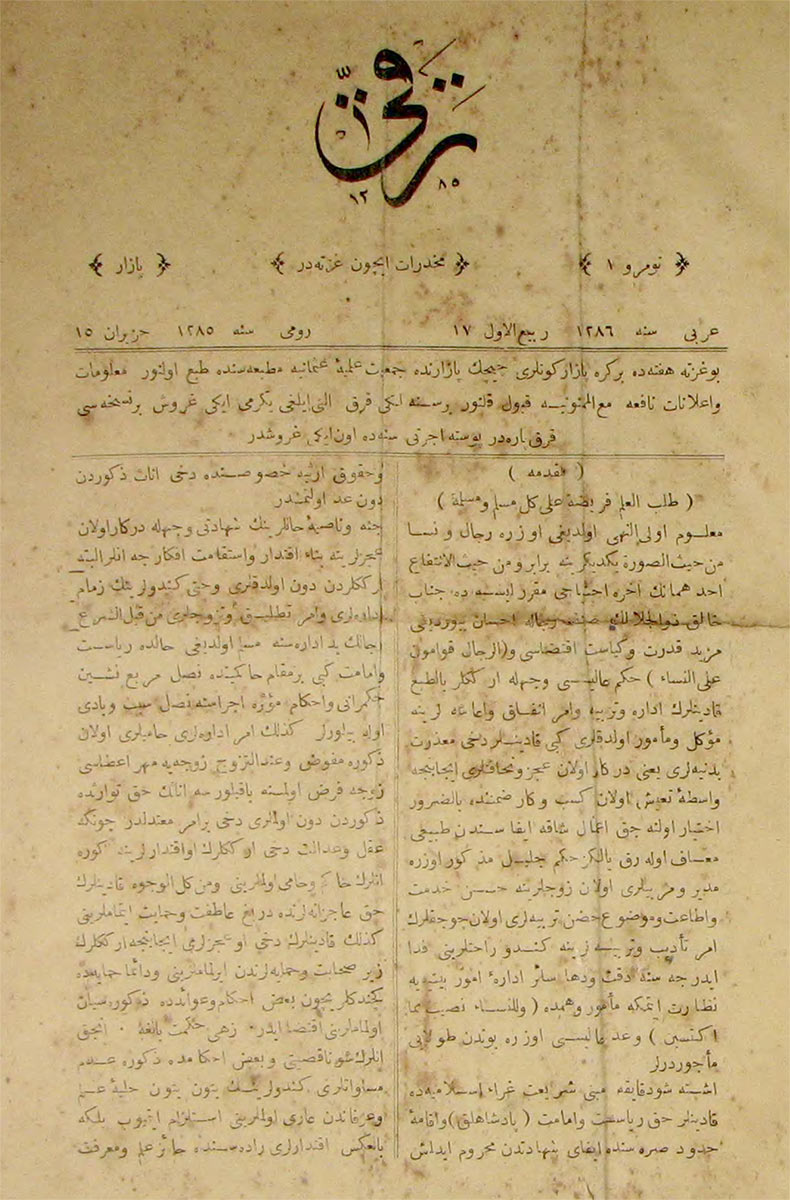 ترقی
١٢٨٥
نومرو ١
مخدرات ایچون غزته‌در
بازار
عربی سنه ١٢٨٦ ربیع الاول ١٧
رومی سنه ١٢٨٥ حزیران ١٥
بو غزته هفته‌ده بركره بازار كونلری چیچك بازارنده جمعیت علمیهٔ عثمانیه مطبعه‌سنده طبع اولنور معلومات
واعلانات نافعه مع الممنونیه قبول قلنور برسنه‌لكی قرق التی‌ایلغی یكرمی ایكی غروش برنسخه‌سی
قرق پاره‌در پوسته اجرتی سنه‌ده اون‌ایكی غروشدر
( مقدمه )
( طلب العلم فریضة علی كل مسلم ومسلمة )
معلوم اولی النهی اولدیغی اوزره رجال و نسا
من حیث الصورة یكدیكرینه برابر و من حیث الانتفاع
احد همانك آخره احتیاجی مقرر ایسه ده جناب
خالق ذوالجلالك صنف رجاله احسان بیوردیغی
مزید قدرت وكیاست اقتضاسی و(الرجال قوامون
علی النساء ) حكم عالیسی وجهله ار ككلر بالطبع
قادینلرك اداره وتربیه وامر انفاق واعاشه لرینه
مؤكل ومأمور اولدقلری كبی قادینلر دخی معذرت
بدنیه‌لری یعنی دركار اولان عجز ونحافتلری ایجابنجه
واسطهٔ تعیش اولان كسب و كار ضمننده بالضرور
اختیار اولنه جق اعمال شاقه ایفا سندن طبیعی
معاف اوله رق یالكز حكم جلیل مذ كور اوزره
مدیر ومربیلری اولان زوجلرینه حسن خدمت
واطاعت وموضوع حضن تربیه‌لری اولان چوجقلرك
امر تأدیب وتربیه لرینه كندو راحتلرینی فدا
ایدرجه سنه دقت ودها سائر ادارهٔ امور بیتیه یه
نظارت ایتمكه مأمور وهمده ( وللنساء نصیب مما
اكتسبن ) وعد عالیسی اوزره بوندن طولایی
مأجوردرلر
اشته شو دقایقه مبنی شریعت غراء اسلامیه‌ده
قادینلر حق ریاست وامامت ( پادشاهلق ) واقامهٔ
حدود صره سنده ایفای شهادتدن محروم ایدلش
وحقوق ارثیه خصوصنده دخی اناث ذكوردن
دون عد اولنمشدر
جثه وناصیهٔ حاللرینك شهادتی وجهله دركار اولان
عجزلرینه بناء اقتدار واستقامت افكارجه انلر البته
ار ككلردن دون اولدقلری وحتی كندولرینك زمام
اداره‌لری وامر تطلیق وتزوجلری من قبل الشرع
رجالك ید اداره‌سنه مسلم اولدیغی حالده ریاست
وامامت كبی برمقام حاكیتده نصل مربع نشین
حكمرانی واحكام مؤثره اجراسنه نصل سبب وبادی
اوله بیلورلر كذلك امر اداره‌لری حامیلری اولان
ذكوره مفوض وعندالتزوج زوجه‌یه مهر اعطاسی
زوجه فرض اولمسنه باقیلورسه اناثك حق توارثده
ذكوردن دون اولملری دخی برامر معتدلدر چونكه
عقل وعدالت دخی ارككلرك اواقتدارلرینه كوره
انلرك حاكم وحامی اولملرینی ومن كل الوجوه قادینلرك
حق عاجزانه‌لرنده دریغ عاطفت وحمایت ایتماملرینی
كذلك قادینلرك دخی او عجزلری ایجابنجه ارككلرك
زیر صحابت وحمایه‌لرندن ایرلماملرینی ودائما حمایه‌ده
بعض احكام وعوائدده ذكوره سیان
اولماملرینی اقتضا ایدر زهی حكمت بالغه انجق
انلرك شو ناقصیتی وبعض احكامده ذكوره عدم
مساواتلری كندولرینك بتون بتون حلیهٔ علم
وعرفاندن عاری اولملرینی استلزام ایتیوب بلكه
بالعكس اقتدارلری راده‌سنده حائز علم ومعرفت